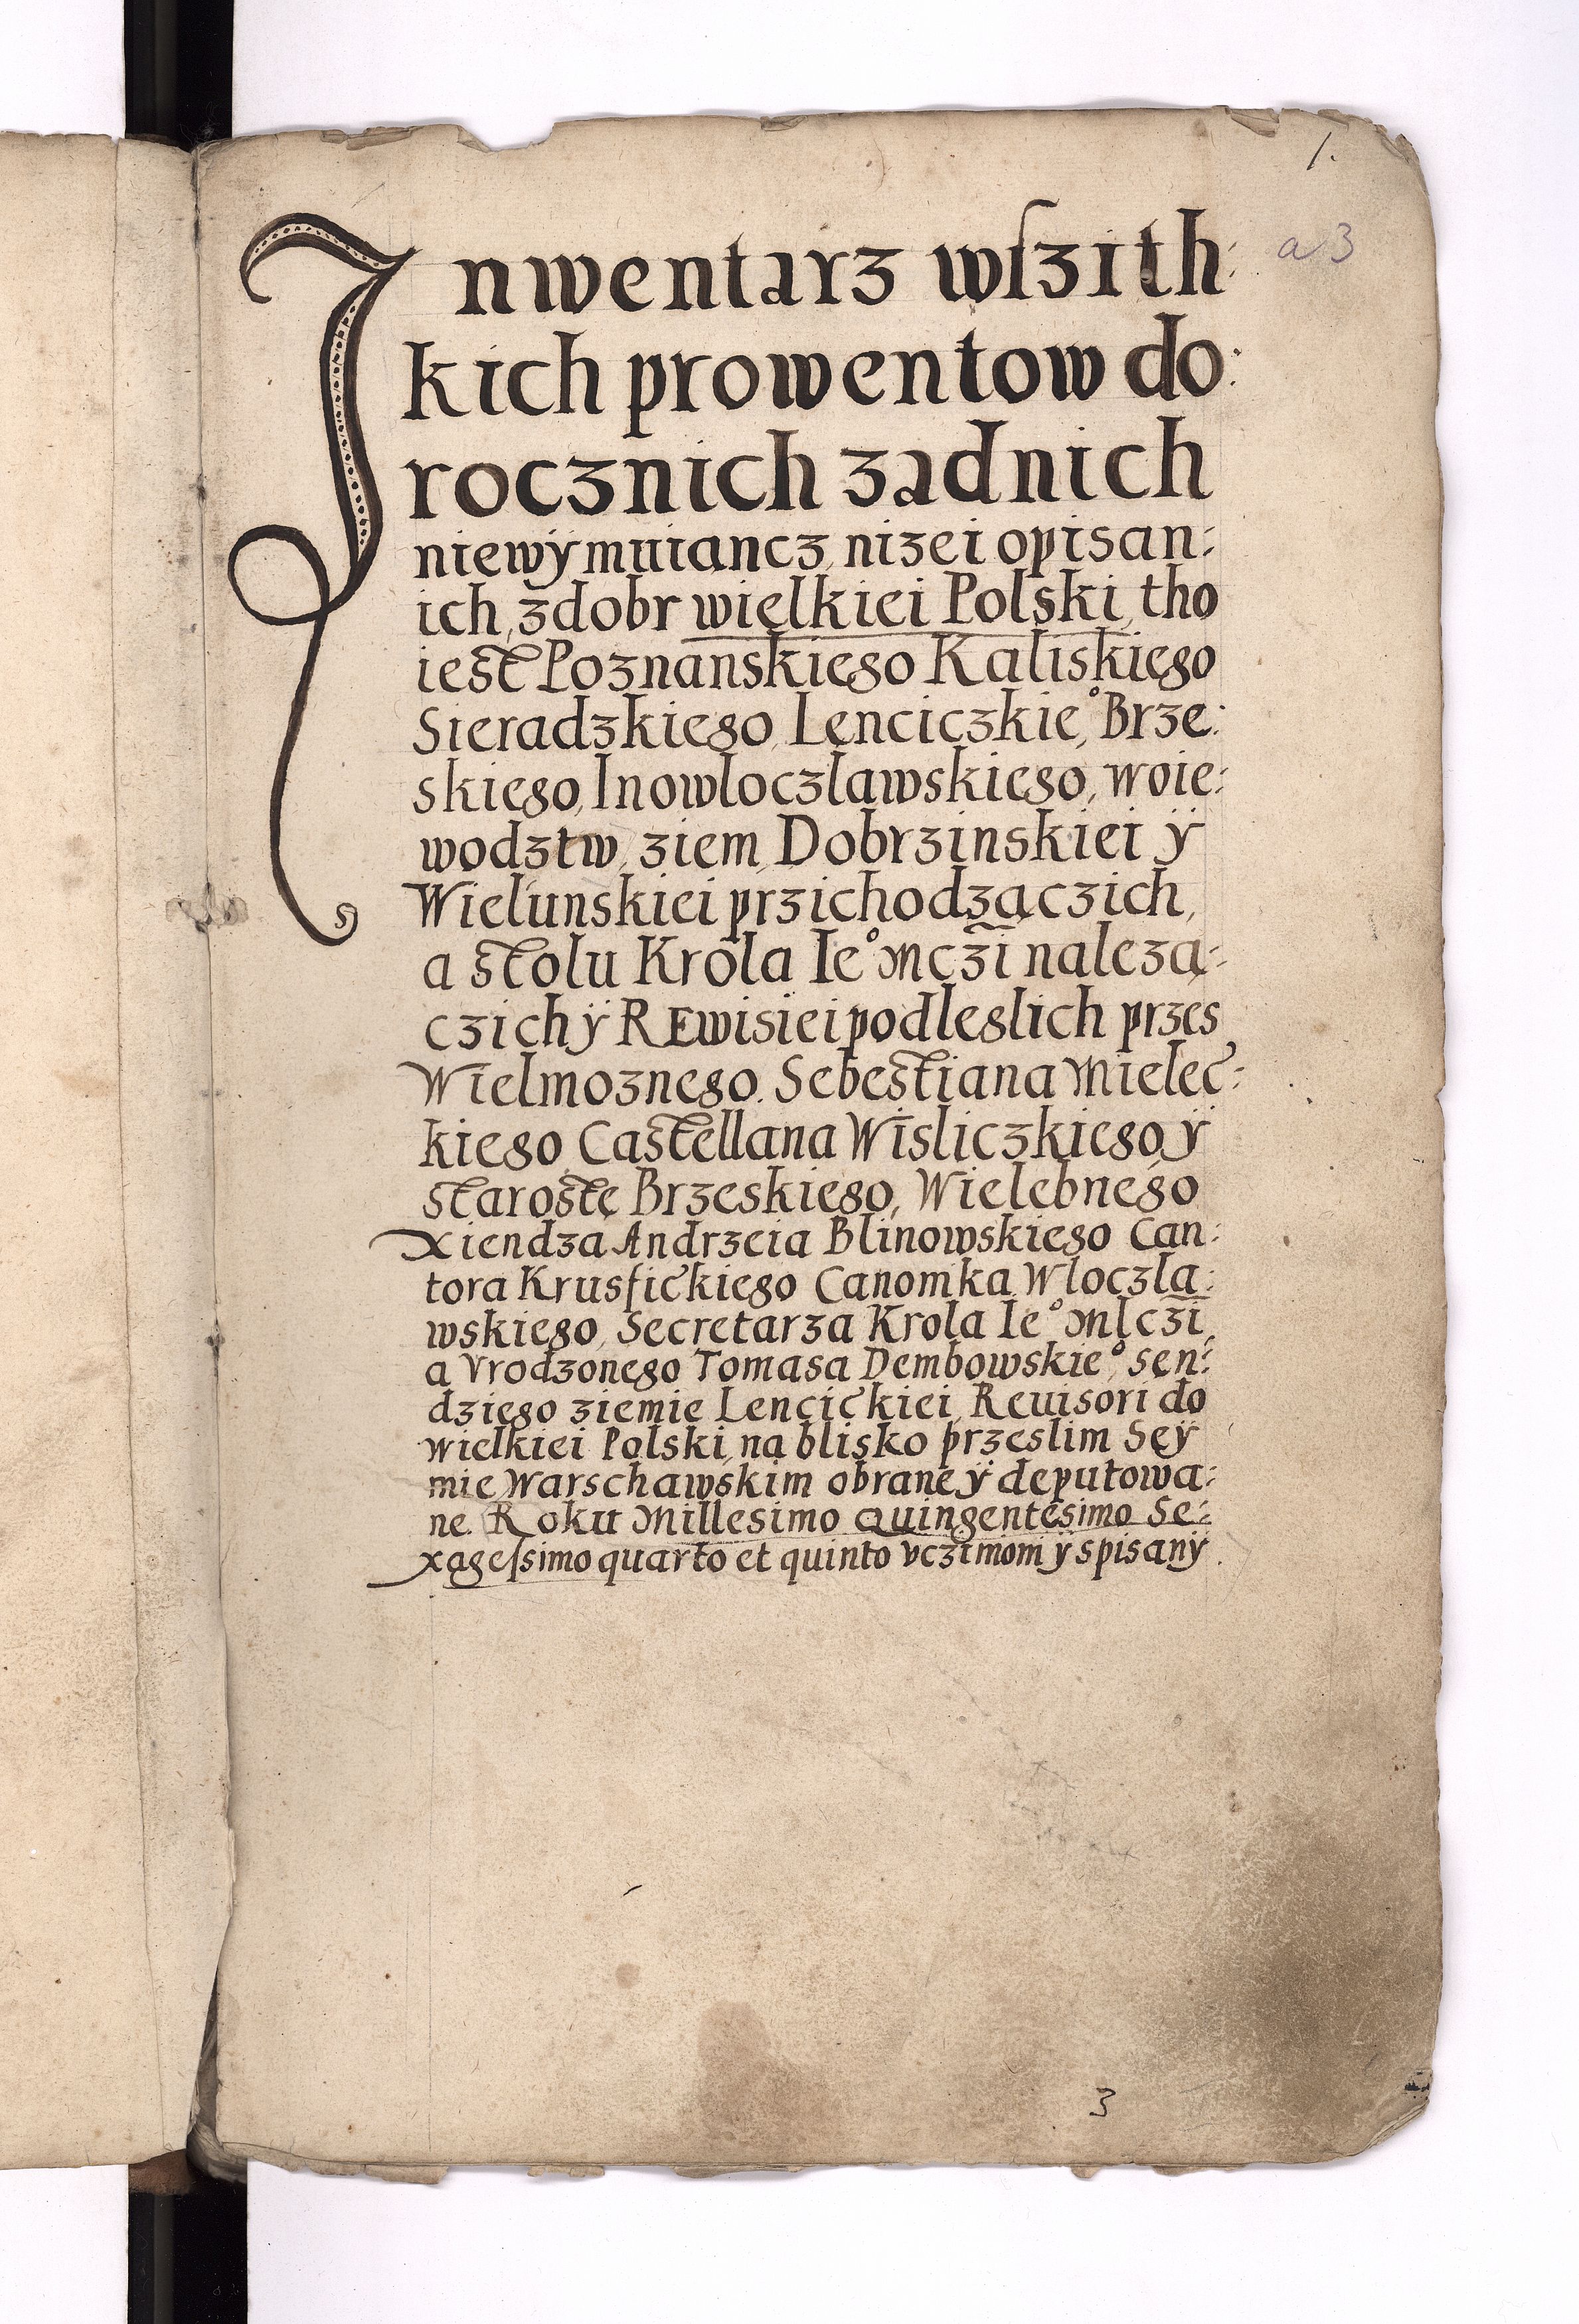 1.
a 3
Inwentarz wſzith:
kich prowentow do:
rocznich zadnich
niewÿmuiancz, nizei opisan:
ich, zdobr wielkiei Polski, tho
iest Poznanskiego Kaliskiego
Sieradzkiego, Lenciczkie°, Brze:
skiego, Inowloczlawskiego, woie:
wodztw, ziem, Dobrzinskiei ÿ
Wielunskiei przichodzączich,
a stolu Krola Ie° Mczi należą:
czich ÿ REwisiei podleglich przes
Wielmoznego. Sebestiana Mielec:
kiego, Castellana Wisliczkiego, ÿ
staroste Brzeskiego, Wielebnego
Xiendza Andrzeia Blinowskiego Can:
tora Krusfickiego Canonika Wloczla:
wskiego, Secretarza Krola Ie° Mlczi,
a Vrodzonego Tomasa Dembowskie°, sen:
dziego ziemie Lencickiei, Reuisori do
wielkiei Polski, na blisko przeslim Seÿ
mie Warschawskim obrane ÿ deputowa:
ne. Roku Millesimo Quingentesimo Se:
xageſsimo quarto et quinto vczinioni ÿ spisanÿ.
3